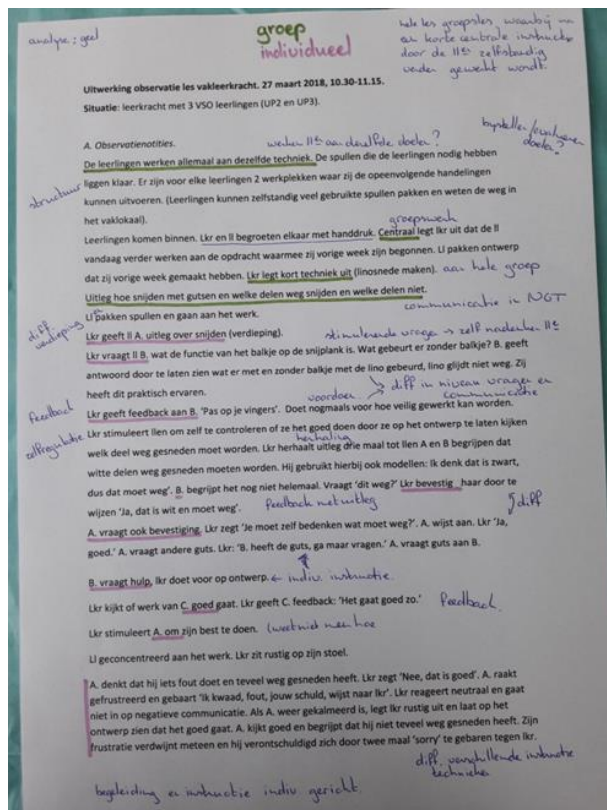 analyse : geel
groep
individueel
hele les groepsles waarbij na
een korte centrale instructie
door de lln zelfstandig
verder gewerkt wordt.
Uitwerking observatie les vakleerkracht. 27 maart 2018, 10.30-11.15.
Situatie: leerkracht met 3 VSO leerlingen (UP2 en UP3).
A. Observatienotities.
werken lln aan dezelfde doelen?
bijstellen/evalueren
doelen?
De leerlingen werken allemaal aan dezelfde techniek. De spullen die de leerlingen nodig hebben
structuur
liggen klaar. Er zijn voor elke leerlingen 2 werkplekken waar zij de opeenvolgende handelingen
kunnen uitvoeren. (Leerlingen kunnen zelfstandig veel gebruikte spullen pakken en weten de weg in
het vaklokaal).
groepswerk
Leerlingen komen binnen. Lkr en ll begroeten elkaar met handdruk. Centraal legt lkr uit dat de ll
vandaag verder werken aan de opdracht waarmee zij vorige week zijn begonnen. Ll pakken ontwerp
dat zij vorige week gemaakt hebben. Lkr legt kort techniek uit (linosnede maken). aan hele groep
Uitleg hoe snijden met gutsen en welke delen weg snijden en welke delen niet.
communicatie in NGT
Ll pakken spullen en gaan aan het werk.
diff.
verdieping
Lkr geeft ll A. uitleg over snijden (verdieping).
stimulerende vragen → zelf nadenken lln
Lkr vraagt ll B. wat de functie van het balkje op de snijplank is. Wat gebeurt er zonder balkje? B. geeft
antwoord door te laten zien wat er met en zonder balkje met de lino gebeurd, lino glijdt niet weg. Zij
heeft dit praktisch ervaren.
voordoen
diff in niveau vragen en
communicatie
feedback
Lkr geeft feedback aan B. 'Pas op je vingers'. Doet nogmaals voor hoe veilig gewerkt kan worden.
zelfregulatie
Lkr stimuleert llen om zelf te controleren of ze het goed doen door ze op het ontwerp te laten kijken
herhaling
welk deel weg gesneden moet worden. Lkr herhaalt uitleg drie maal tot llen A en B begrijpen dat
witte delen weg gesneden moeten worden. Hij gebruikt hierbij ook modellen: Ik denk dat is zwart,
dus dat moet weg'. B. begrijpt het nog niet helemaal. Vraagt 'dit weg?' Lkr bevestig haar door te
wijzen 'Ja, dat is wit en moet weg'.
feedback met uitleg
diff
A. vraagt ook bevestiging. Lkr zegt 'Je moet zelf bedenken wat moet weg?'. A. wijst aan. Lkr 'Ja,
goed.' A. vraagt andere guts. Lkr: 'B. heeft de guts, ga maar vragen.' A. vraagt guts aan B.
B. vraagt hulp, lkr doet voor op ontwerp. ← indiv. instructie.
Lkr kijkt of werk van C. goed gaat. Lkr geeft C. feedback: 'Het gaat goed zo.' feedback
Lkr stimuleert A. om zijn best te doen. (weet niet meer hoe
Ll geconcentreerd aan het werk. Lkr zit rustig op zijn stoel.
A. denkt dat hij iets fout doet en teveel weg gesneden heeft. Lkr zegt 'Nee, dat is goed'. A. raakt
gefrustreerd en gebaart 'ik kwaad, fout, jouw schuld, wijst naar lkr'. Lkr reageert neutraal en gaat
niet in op negatieve communicatie. Als A. weer gekalmeerd is, legt lkr rustig uit en laat op het
ontwerp zien dat het goed gaat. A. kijkt goed en begrijpt dat hij niet teveel weg gesneden heeft. Zijn
frustratie verdwijnt meteen en hij verontschuldigd zich door twee maal 'sorry' te gebaren tegen lkr.
diff. verschillende instructie
technieken
begeleiding en instructie indiv gericht.